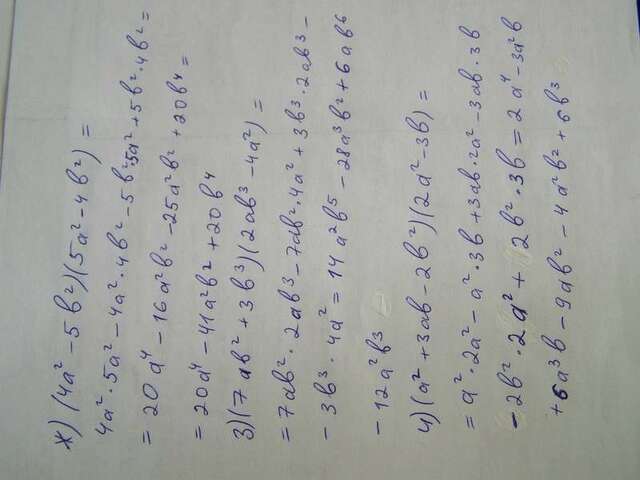 ж) (4a² - 5b²)(5a² - 4b²) =
4a²·5a² - 4a²·4b² - 5b²·5a² + 5b²·4b² =
= 20a⁴ - 16a²b² - 25a²b² + 20b⁴ =
= 20a⁴ - 41a²b² + 20b⁴
3) (7ab² + 3b³)(2ab³ - 4a²) =
= 7ab²·2ab³ - 7ab²·4a² + 3b³·2ab³ -
- 3b³·4a² = 14a²b⁵ - 28a³b² + 6ab⁶
- 12a²b³
4) (a² + 3ab - 2b²)(2a² - 3b) =
= a²·2a² - a²·3b + 3ab·2a² - 3ab·3b
- 2b²·2a² + 2b²·3b = 2a⁴ - 3a²b
+ 6a³b - 9ab² - 4a²b² + 6b³